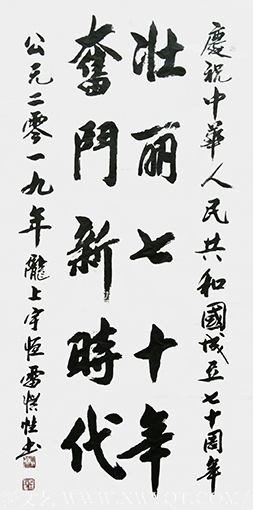 慶祝中華人民共和國成立七十周年
壯麗七十年
奮鬥新時代
公元二零一九年隴上宇恒雷書